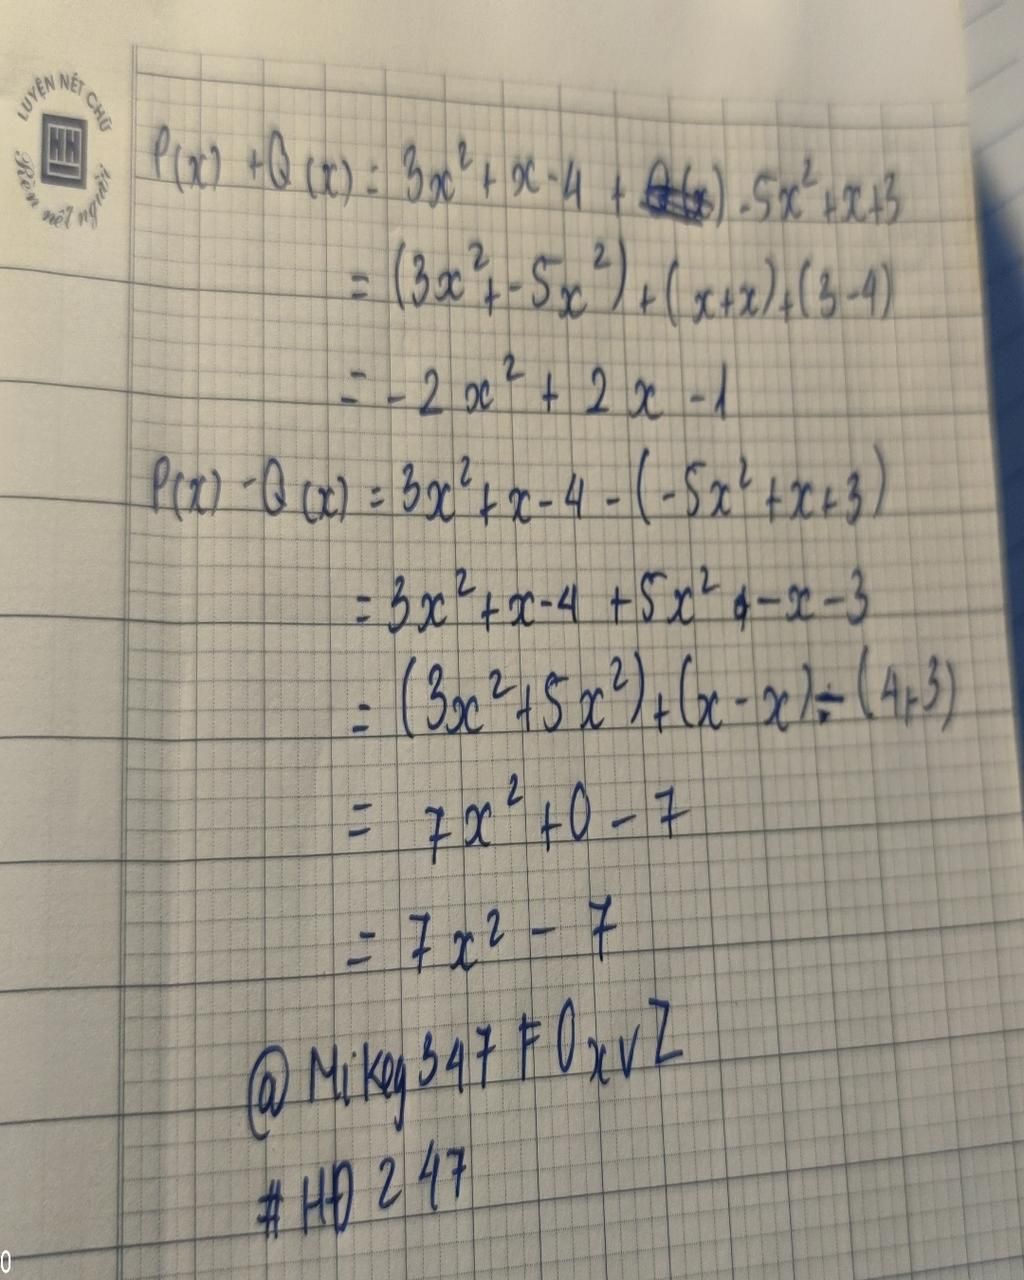 LUYỆN NÉT CHỮ
HH
Rèn nết người
P(x) + Q(x) = 3x² + x - 4 + - 5x² + x + 3
= (3x² + - 5x²) + (x + x) + (3 - 4)
= - 2x² + 2x - 1
P(x) - Q(x) = 3x² + x - 4 - (- 5x² + x + 3)
= 3x² + x - 4 + 5x² - x - 3
= (3x² + 5x²) + (x - x) - (4 + 3)
= 7x² + 0 - 7
= 7x² - 7
@Mikey347F0xvZ
#HĐ247
0